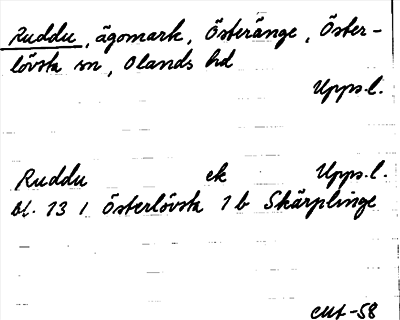 Ruddu, ägomark, Österänge, Öster-
lövsta sn, Olands hd
Upps.l.
Ruddu ek Upps.l.
bl. 13 I Österlövsta 1b Skärplinge
-58